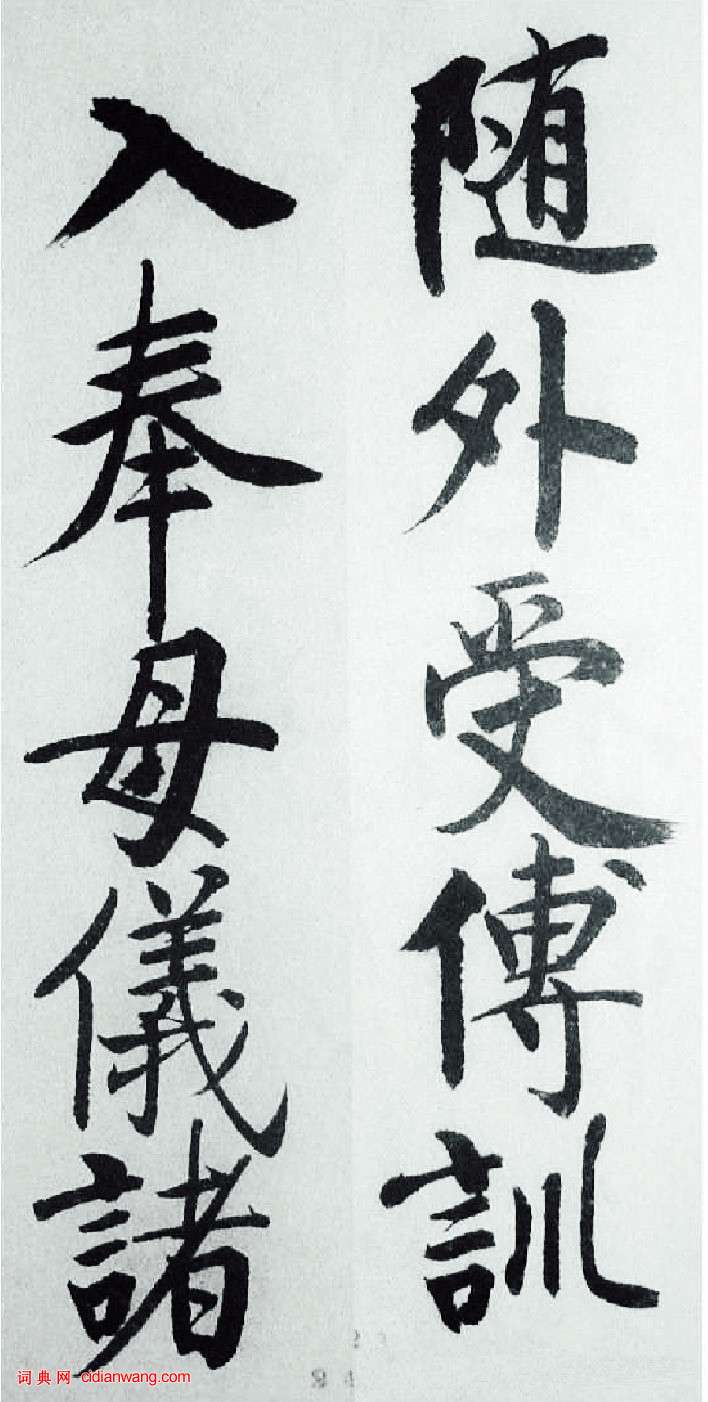 随外受傅訓
入奉母儀諸
词典网 cidianwang.com